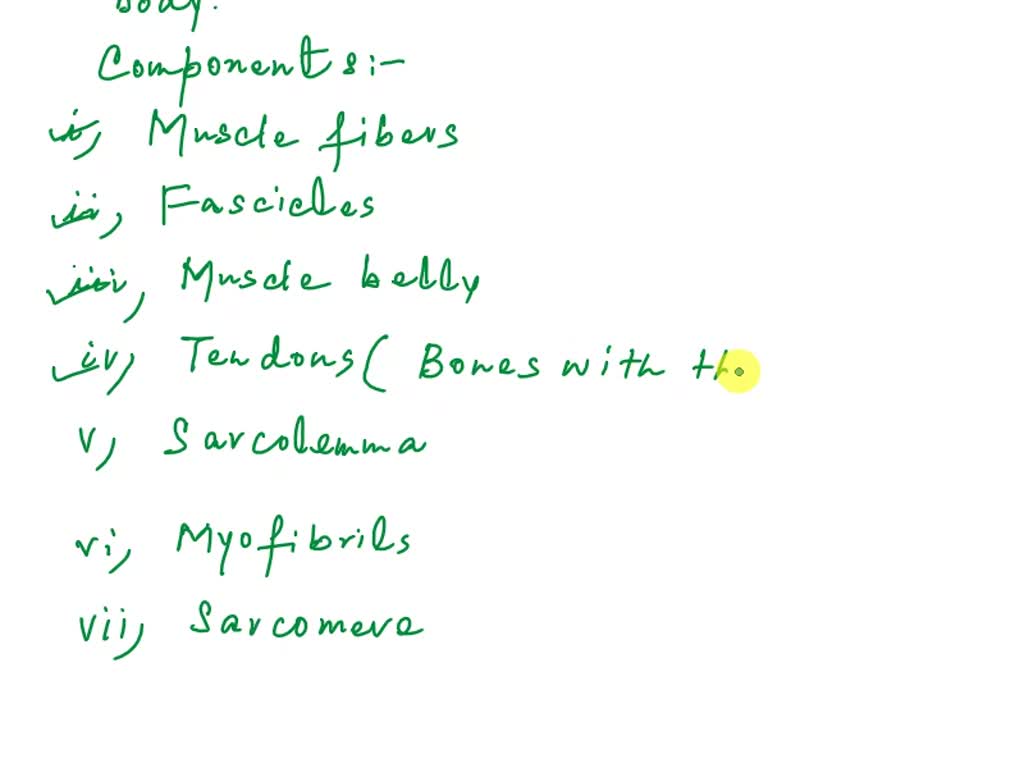 body.
Components:-
i, Muscle fibers
ii, Fascicles
iii, Muscle belly
iv, Tendons ( Bones with th
v, Sarcolemma
vi, Myofibrils
vii, Sarcomere